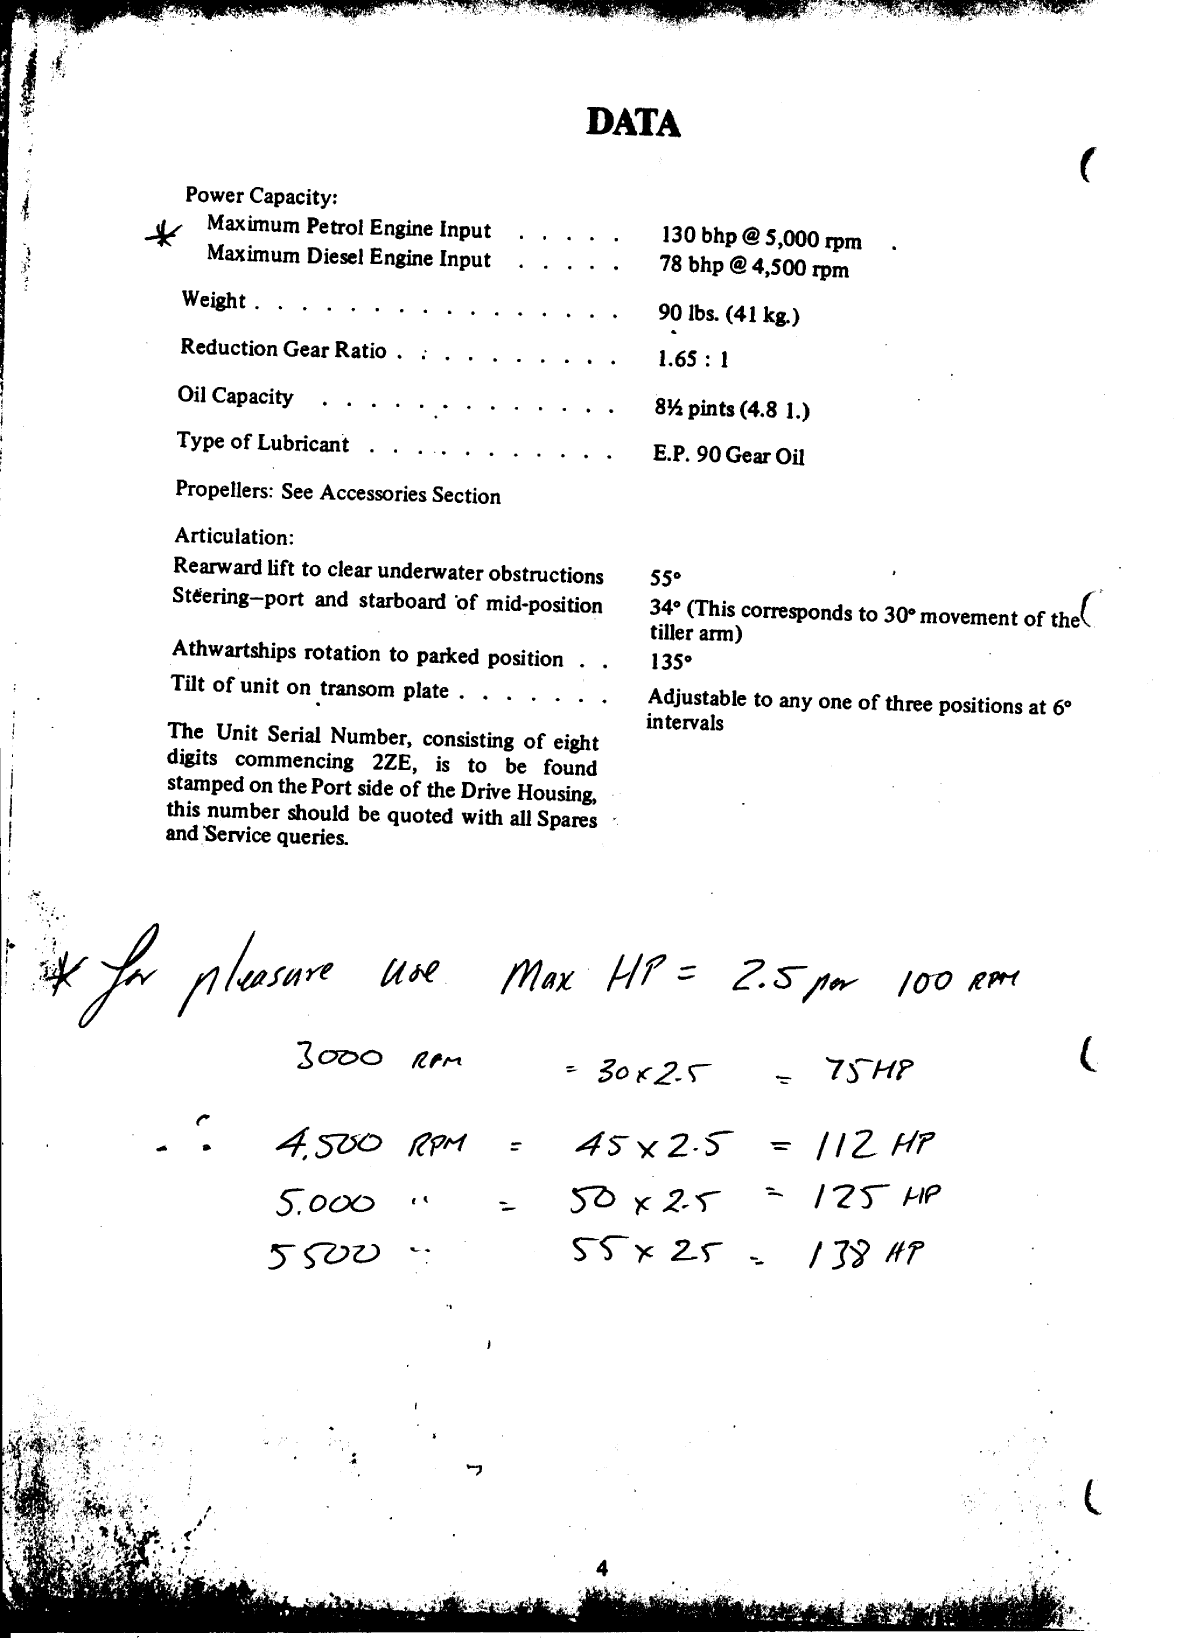 DATA
Power Capacity:
* Maximum Petrol Engine Input . . . . . 130 bhp @ 5,000 rpm
Maximum Diesel Engine Input . . . . . 78 bhp @ 4,500 rpm
Weight . . . . . . . . . . . . . . . . 90 lbs. (41 kg.)
Reduction Gear Ratio . . . . . . . . . . 1.65 : 1
Oil Capacity . . . . . . . . . . . . . 8½ pints (4.8 1.)
Type of Lubricant . . . . . . . . . . . E.P. 90 Gear Oil
Propellers: See Accessories Section
Articulation:
Rearward lift to clear underwater obstructions 55°
Steering—port and starboard of mid-position 34° (This corresponds to 30° movement of the
tiller arm)
Athwartships rotation to parked position . . 135°
Tilt of unit on transom plate . . . . . . . Adjustable to any one of three positions at 6°
intervals
The Unit Serial Number, consisting of eight
digits commencing 2ZE, is to be found
stamped on the Port side of the Drive Housing,
this number should be quoted with all Spares
and Service queries.
* for pleasure use Max HP = 2.5 per 100 RPM
3000 RPM = 30 x 2.5 = 75 HP
∴ 4,500 RPM = 45 x 2.5 = 112 HP
5.000 " = 50 x 2.5 = 125 HP
5500 " 55 x 25 = 138 HP
4